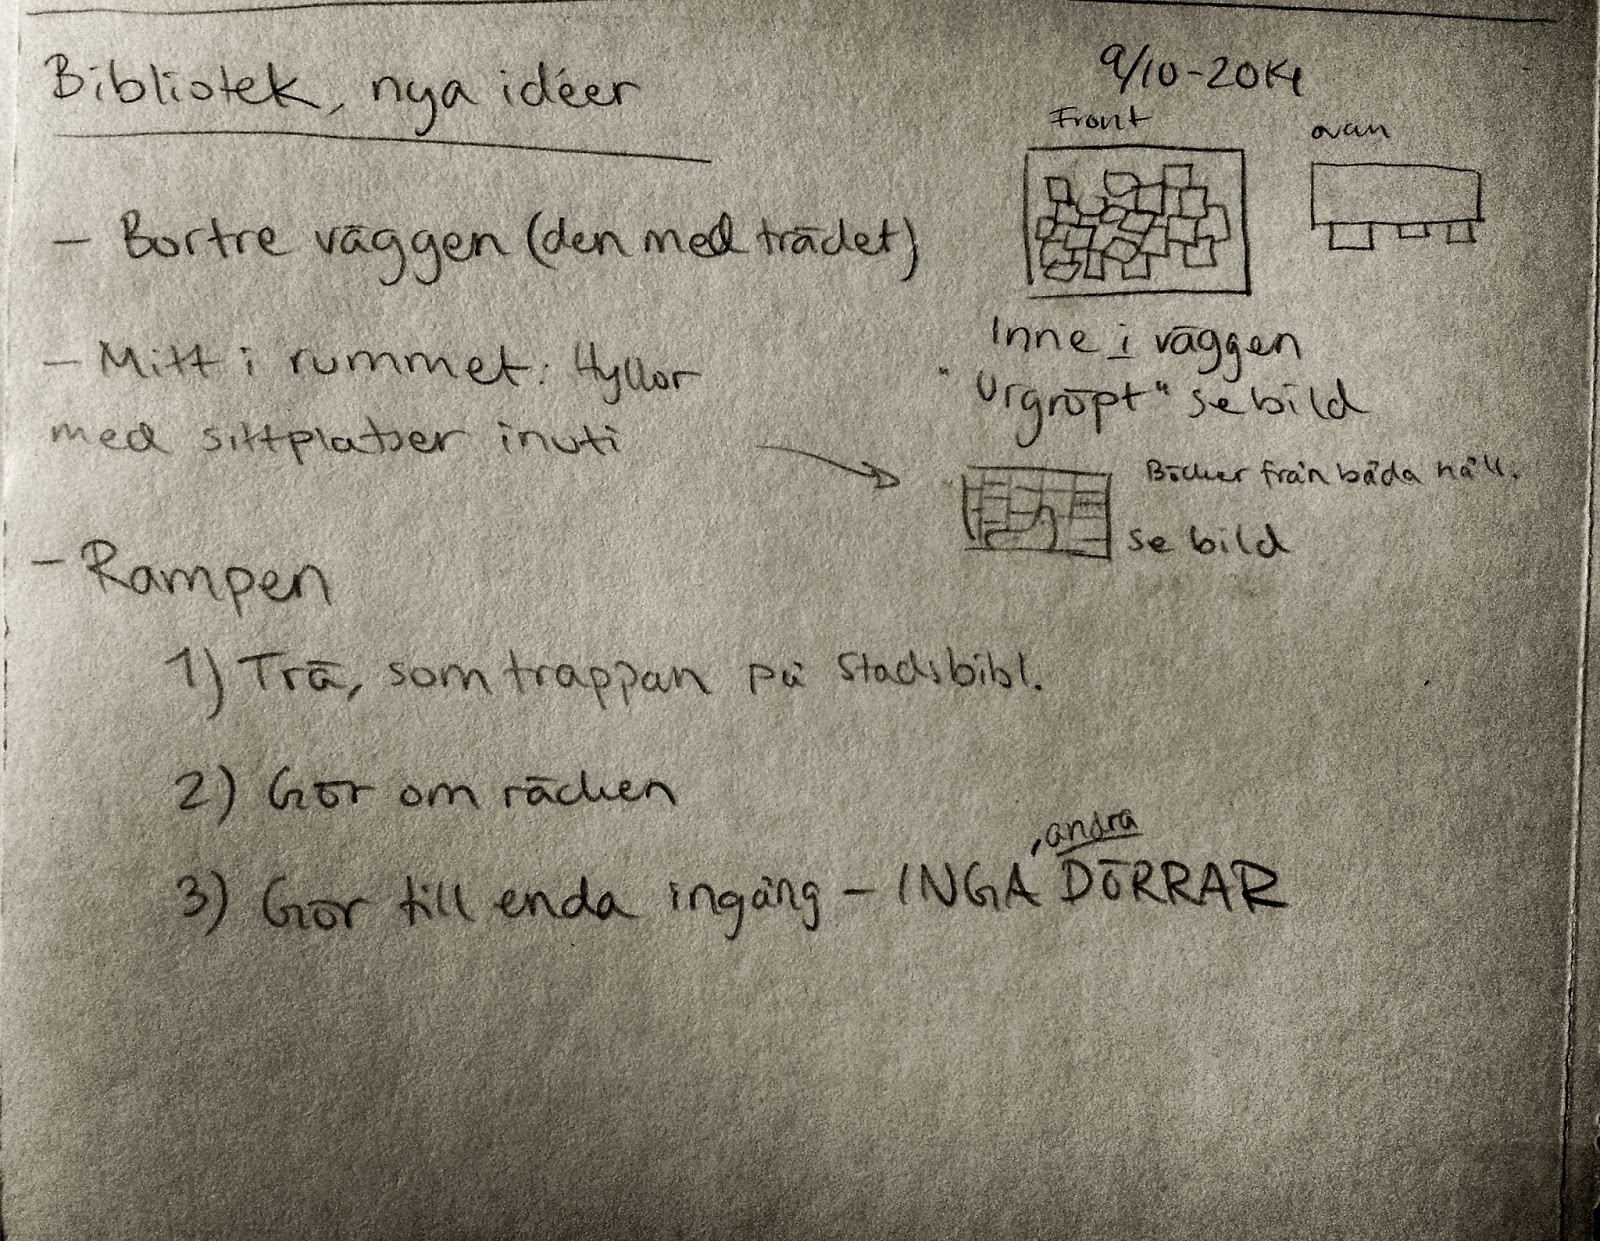 Bibliotek, nya idéer
9/10-2014
Front
ovan
- Bortre väggen (den med trädet)
Inne i väggen
"Urgröpt" se bild
- Mitt i rummet: Hyllor
med sittplatser inuti
Böcker från båda håll.
se bild
- Rampen
1) Trä, som trappan på Stadsbibl.
2) Gör om räcken
3) Gör till enda ingång - INGA ,andra DÖRRAR